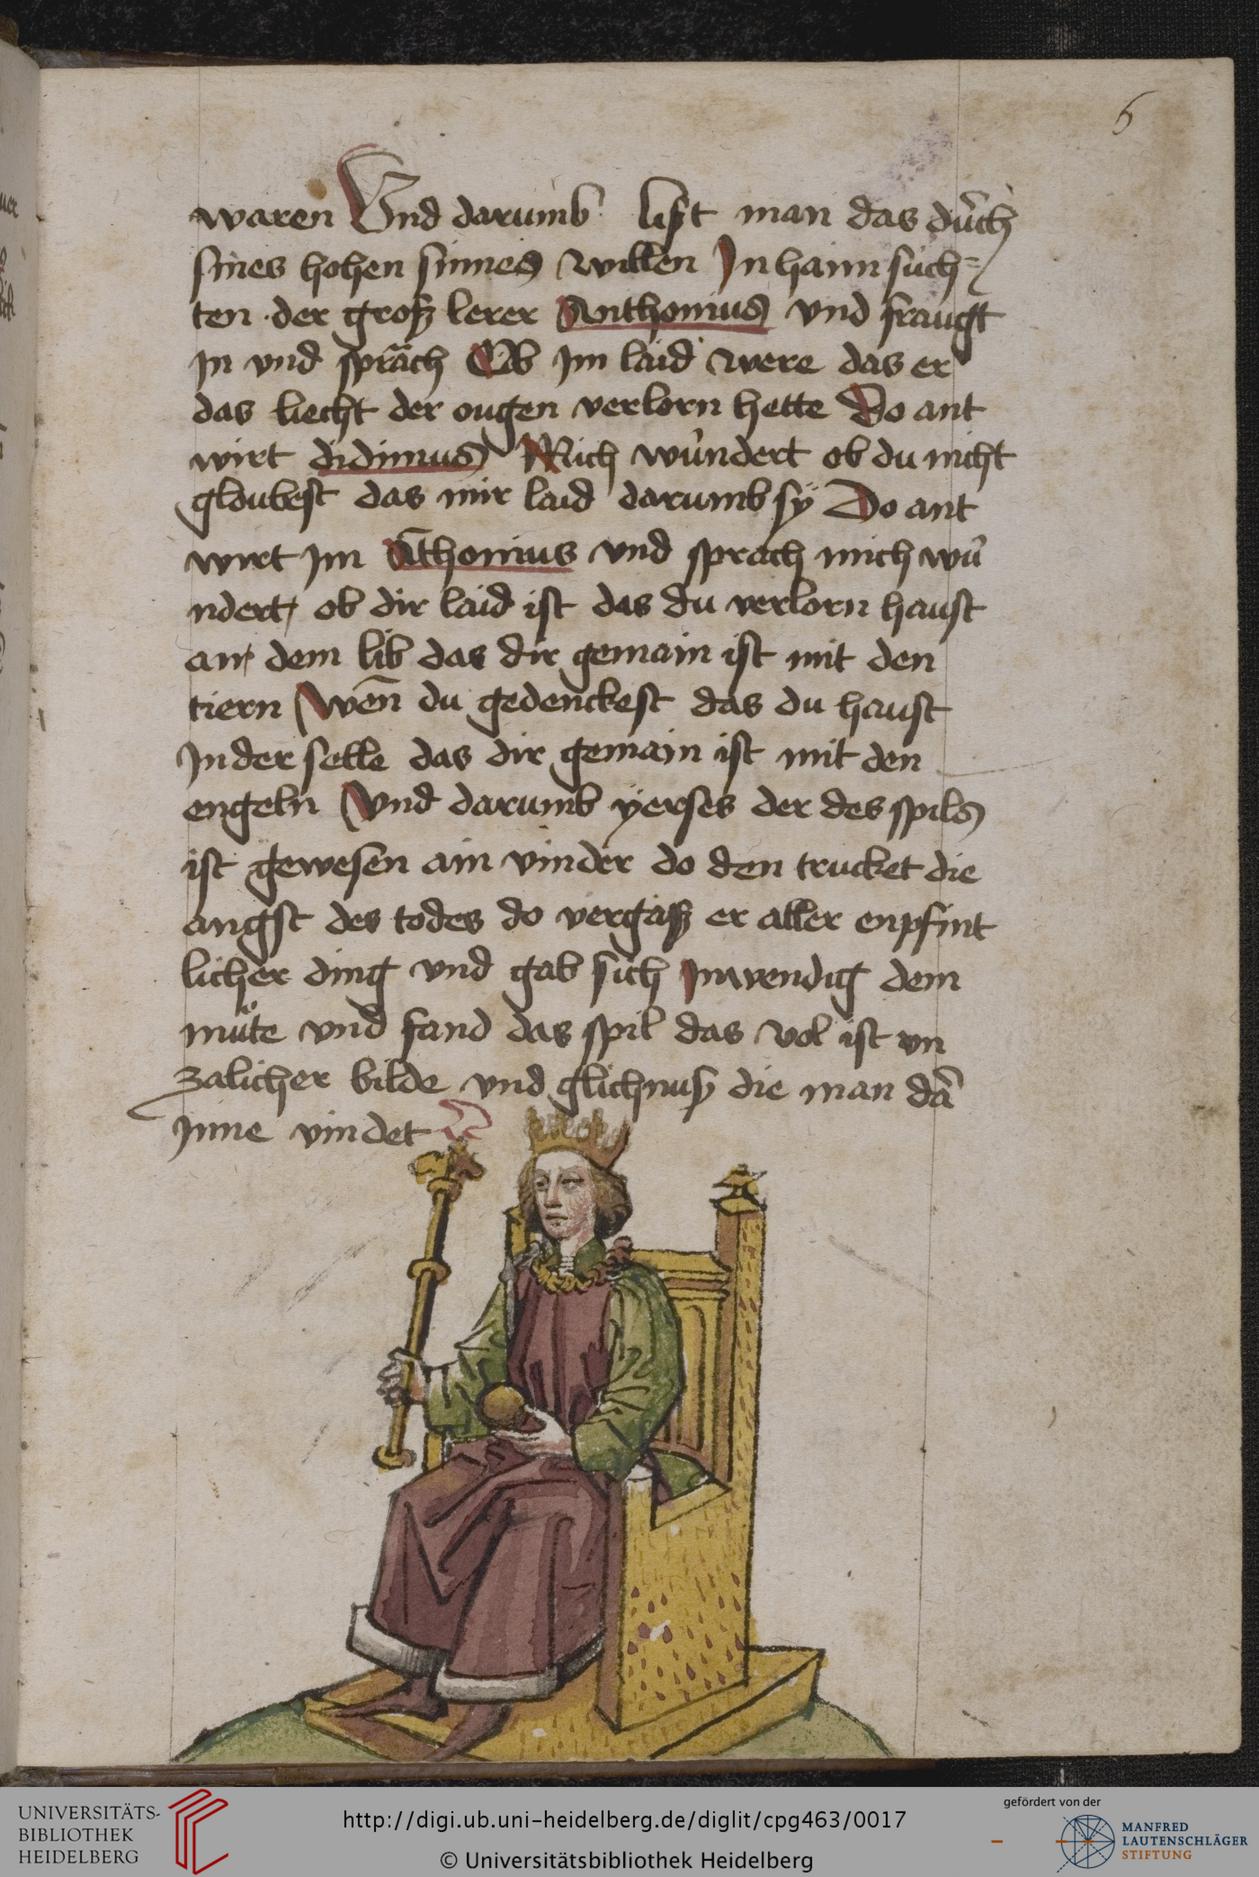 6
waren Vnd darumb list man das dǔrch
sines hohen sinnes willen In haim sůch=
ten der groß lerer Anthonius vnd fraugt
In vnd sprăch Ob Im laid were das er
das liecht der ougen verlorn hette Do ant
wirt didimus Mich wůndert ob du nicht
gloubest das mir laid darumb sÿ Do ant
wirt Im Āthonius vnd sprach mich wů
ndert ob dir laid ist das du verlorn haust
an dem lib das dir gemain ist mit den
tiern Wēn du gedenckest das du haust
In der selle das dir gemain ist mit den
engeln Vnd darumb yerses der des spils
ist gewesen ain vinder do den trucket die
angst des todes do vergaß er aller enpfint
licher ding vnd gab sich Inwendig dem
můte vnd fand das spil das vol ist vn
zalicher bilde vnd glichnuß die man dā
Inne vindet
UNIVERSITÄTS-
BIBLIOTHEK
HEIDELBERG
http://digi.ub.uni-heidelberg.de/diglit/cpg463/0017
© Universitätsbibliothek Heidelberg
gefördert von der
MANFRED
LAUTENSCHLÄGER
STIFTUNG